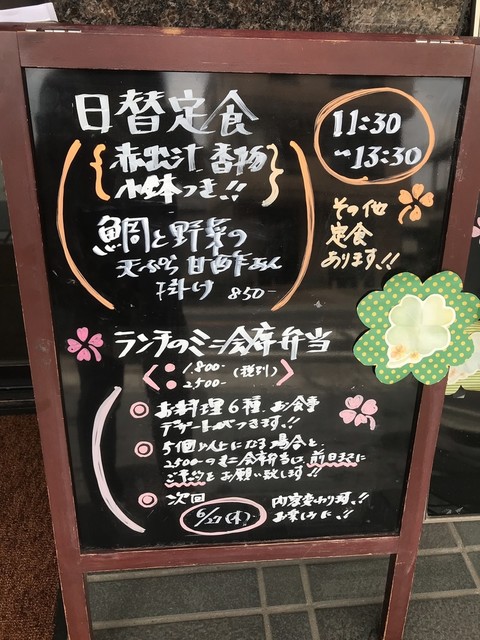 日替定食
11:30
〜13:30
赤出汁 香物
小鉢つき!!
その他
定食
あります!!
鯛と野菜の
天ぷら 甘酢あん
掛け 850-
ランチのミニ会席弁当
1,800-
2,500-
(税別)
お料理6種、お食事
デザートがつきます!!
5個以上になる場合と、
2500-のミニ会席弁当は、前日までに
ご予約をお願い致します!!
次回
6/27(木)
内容変わります!!
お楽しみに!!